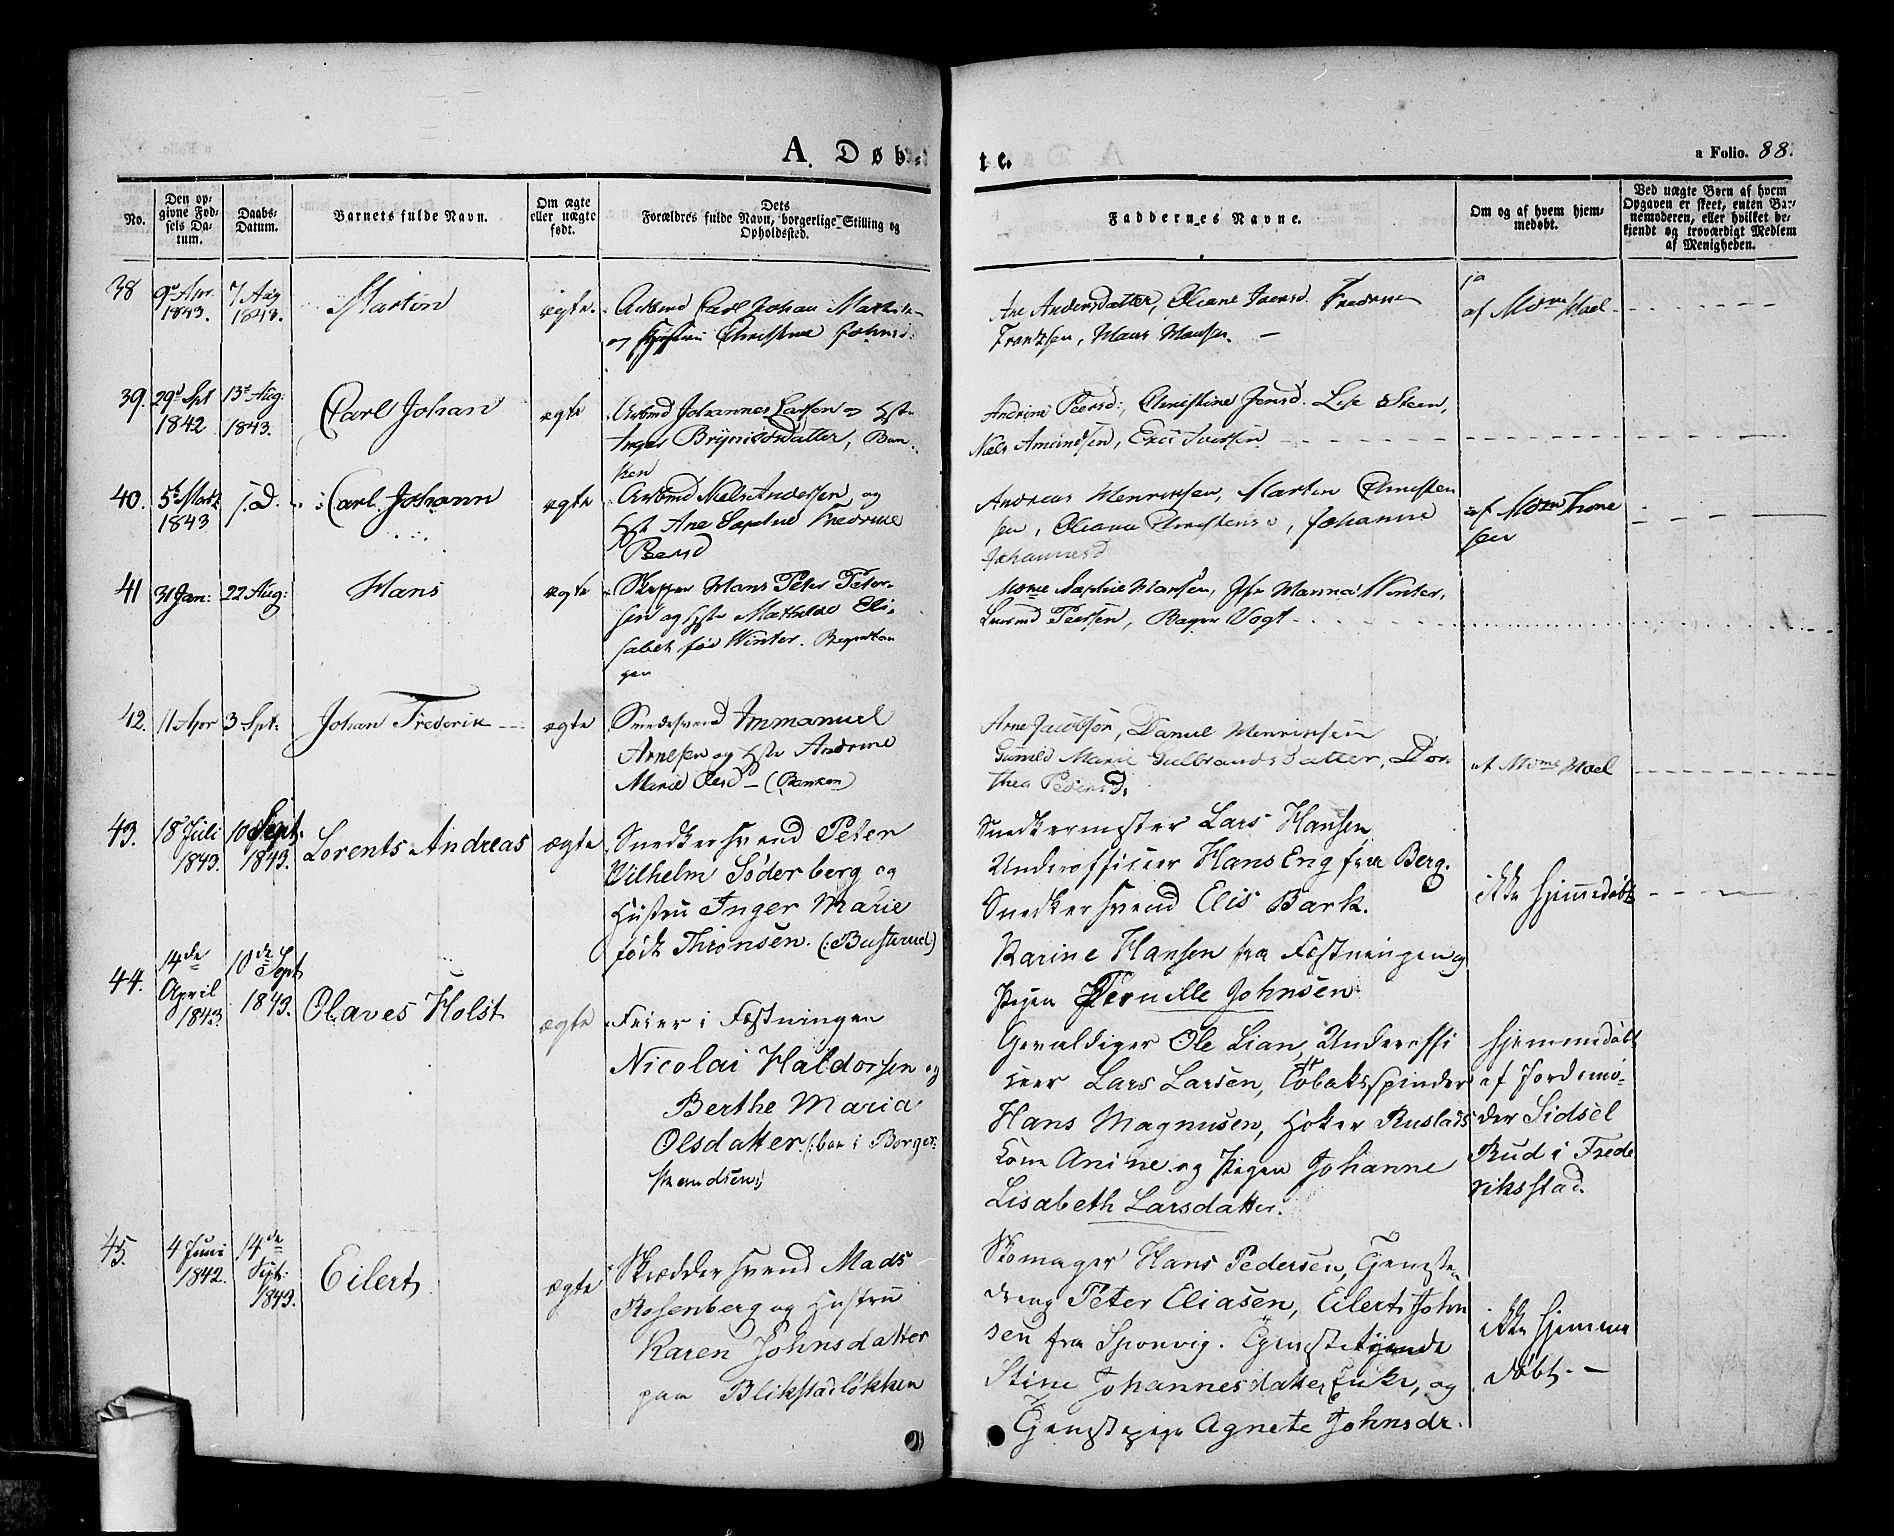 A. Døbte.
a Folio. 88.
No.
Den opgivne Fødsels Datum.
Daabs-Datum.
Barnets fulde Navn.
Om ægte eller uægte født.
Dets Forældres fulde Navn, borgerlige Stilling og Opholdssted.
Faddernes Navne.
Om og af hvem hjemmedøbt.
Ved uægte Børn af hvem Opgaven er skeet, enten Barnemoderen, eller hvilket bekjendt og troværdigt Medlem af Menigheden.
38
9de Apr. 1843.
7 Aug 1843.
Martin
ægte.
Arbmd Carl Johan
og Hustru Christine Johnsd:
Ane Andersdatter, Oliane Iversd. Fredrik
Frantzen, Hans Hansen. —
ja
af Mome Hoel
39.
29d Spt 1842
13d Aug: 1843.
Carl Johan
ægte
Arbmd Johannes Larsen og Hst
Inger Brynildsdatter, Ban-
ken
Andrine Peersd:, Christine Jensd. Lise Steen,
Niels Amundsen, Eric Iversen
40.
5t Marts 1843
s. D.
Carl Johann
ægte
Arbmd Niels Andersen og
Hst Ane Sophie Fredrikke
Peersd
Andreas Henriksen, Martin Christen
sen, Oliana Christensd, Johanne
Johannesd
af Mom Thone
sen
41
31 Jan:
22 Aug:
Hans
ægte
Skipper Hans Peter Peter-
sen og Hst Mathilde Eli-
sabet fød Winter.
gen
Mome Sophie Hansen, Jfr Hanna Winter,
Peersen, Bager Vogt
42.
11 Apr
3 Spt:
Johan Frederik
ægte
Smedesvend Immanuel
Arnesen og Hst Andrine
Marie Olesd — (Banken)
Arne Jacobsen, Daniel Henriksen
Gunild Marie Gulbrandsdatter, Dor
thea Pedersd,
af Mome Hoel
43.
18 Juli 1843.
10 Sept: 1843.
Lorents Andreas
ægte
Snedkersvend Peter
Vilhelm Söderberg og
Hustru Inger Marie
født Thronsen. (:Busterud)
Snedkermester Lars Hansen,
Underofficeer Hans Eng fra Berg.
Snedkersvend Elis Bark.
Karine Hansen fra Fæstningen og
Pigen Pernille Johnsen
ikke hjemmedøbt
44.
14de April 1843.
10de Sept 1843.
Olaves Holst
ægte
Feier i Fæstningen
Nicolai Haldorsen og
Berthe Maria
Olsdatter. (:boe i Borger-
skandsen:)
Gevaldiger Ole Lian, Underoffi
ceer Lars Larsen, Tobaksspinder
Hans Magnusen, Høker Rustads
Kone Anine og Pigen Johanne
Lisabeth Larsdatter.
hjemmedøbt
af Jordemo-
der Sidsel
Rud i Frede
riksstad.
45.
4 Juni 1842.
14de Sept: 1843.
Eilert
ægte
Skreddersvend Mads
Rosenberg og Hustru
Karen Johnsdatter
paa Blikstadløkken
Skomager Hans Pedersen, Tjeneste
dreng Peter Eliasen, Eilert John
sen fra Sponvig. Tjenestetyende
Stine Johannesdatter, Enke, og
Tjenestepige Agnete Johnsdr.
ikke hjemme
døbt. —